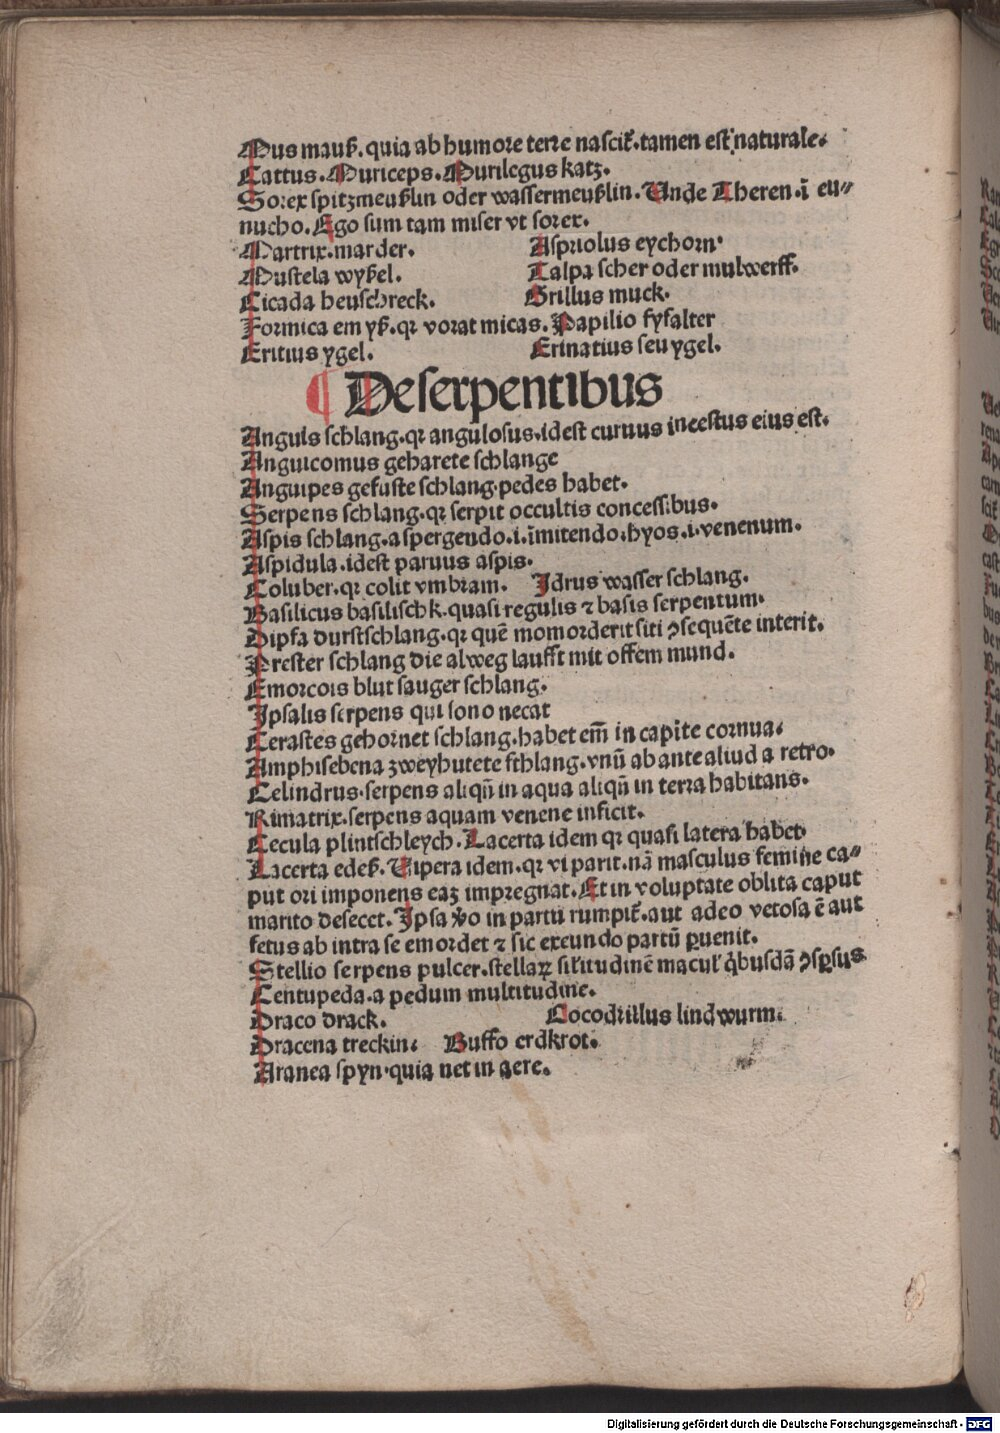 Mus mauß. quia ab humore terre nascit᷑. tamen est naturale.
Cattus. Muriceps. Murilegus katz.
Sorex spitzmeußlin oder wassermeußlin. Unde Theren. ī eu⸗
nucho. Ego sum tam miser vt sorex.
Martrix. marder. Aspriolus eychorn.
Mustela wyßel. Talpa scher oder mulwerff.
Cicada heuschreck. Grillus muck.
Formica em yß. qꝛ vorat micas. Papilio fyfalter
Eritius ygel. Erinatius seu ygel.
¶ De serpentibus
Anguis schlang. qꝛ angulosus. idest curuus incestus eius est.
Anguicomus geharete schlange
Anguipes gefuste schlang. pedes habet.
Serpens schlang. qꝛ serpit occultis concessibus.
Aspis schlang. a spergendo. i. īmitendo. hyos. i. venenum.
Aspidula. idest paruus aspis.
Coluber. qꝛ colit vmbram. Idrus wasser schlang.
Basilicus basilischk. quasi regulis ⁊ basis serpentum.
Dipsa durstschlang. qꝛ quē momorderit siti ꝯsequēte interit.
Prester schlang die alweg laufft mit offem mund.
Emorcois blut sauger schlang.
Ipsalis serpens qui sono necat
Cerastes gehornet schlang. habet em̄ in capite cornua.
Amphisebena zweyhutete sthlang. vnū ab ante aliud a retro.
Celindrus. serpens aliqn̄ in aqua aliqn̄ in terra habitans.
Rimatrix. serpens aquam venene inficit.
Cecula plintschleych. Lacerta idem qꝛ quasi latera habet
Lacerta edeß. Vipera idem. qꝛ vi parit. nā masculus femine ca⸗
put ori imponens eaꝫ impregnat. Et in voluptate oblita caput
marito desecet. Ipsa v̄o in partū rumpit᷑. aut adeo vetosa ē aut
fetus ab intra se emordet ⁊ sic exeundo partū ꝑuenit.
Stellio serpens pulcer. stellaꝝ sil̓itudinē macul̓ qͥbusdā ꝯsꝑsus
Centupeda. a pedum multitudine.
Draco drack. Cocodrillus lindwurm.
Dracena treckin. Buffo erdkrot.
Aranea spyn. quia net in aere.
Digitalisierung gefördert durch die Deutsche Forschungsgemeinschaft - DFG